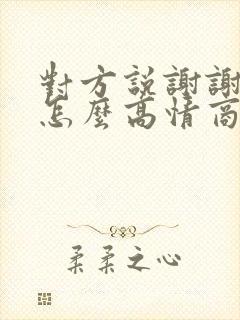 對方說謝謝
怎麼高情商
柔柔之心